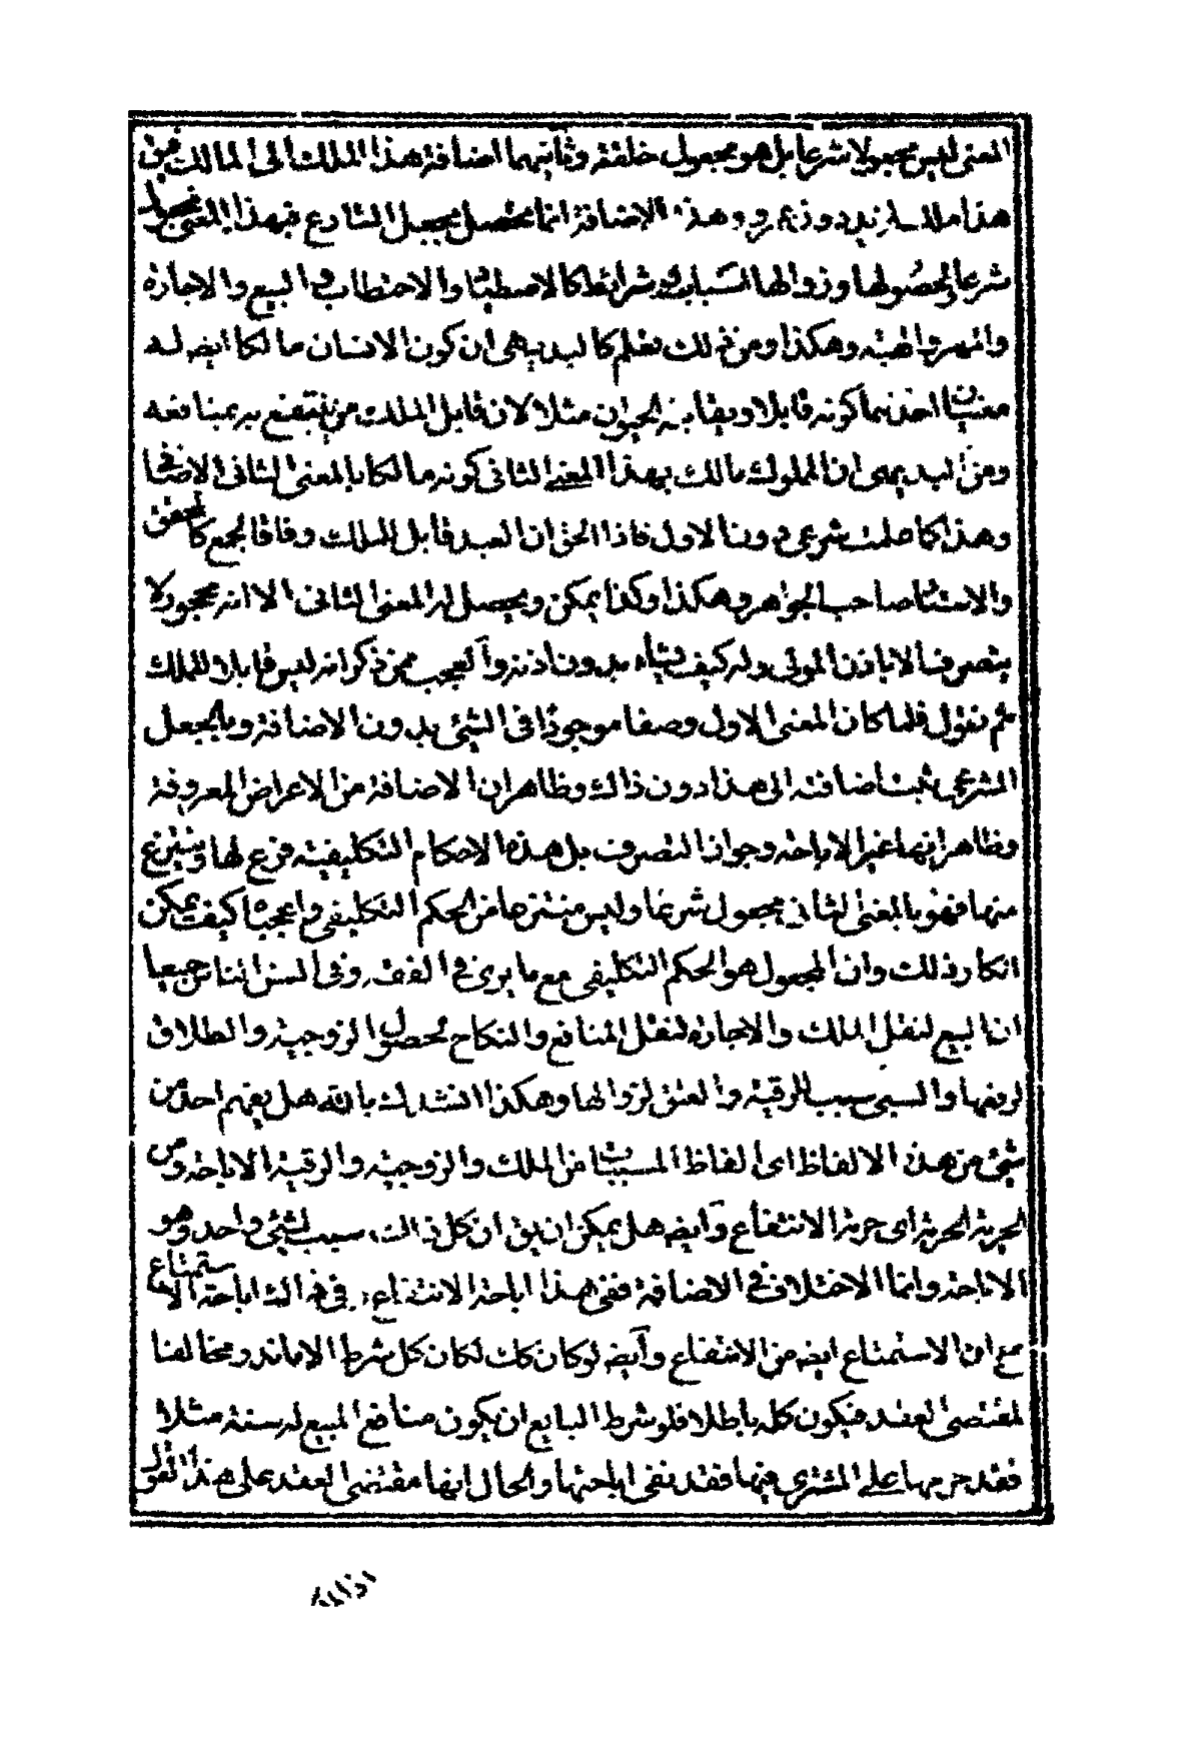 المعنى ليس مجعولا شرعا بل هو مجعول خلقة وثانيهما اضافة هذا الملك الى المالك فيق
هذا ملك لزيد دون عمرو وهذه الاضافة انما تحصل بجعل الشارع فبهذا المعنى مجعول
شرعا ولحصولها وزوالها اسباب وشرائط كالاصطياد والاحتطاب والبيع والاجارة
والمهر والهبة وهكذا ومن ذلك تعلم كالبديهى ان كون الانسان مالكا ايضا له
معنيان احدهما كونه قابلا ويقابله الحيوان مثلا لان قابل الملك من ينتفع به بمنافعه
ومن البديهى ان المملوك مالك بهذا المعنى الثانى كونه مالكا بالمعنى الثانى الاضافى
وهذا كما علمت شرعى دون الاول فاذا الحق ان العبد قابل للملك وفاقا لجمع كالمحقق
والاستاد صاحب الجواهر وهكذا وكذا يمكن ويحصل له المعنى الثانى الا انه محجور لا
يتصرف الا باذن المولى وله كيف يشاء بدون اذنه والعجب ممن ذكر انه ليس قابلا للملك
ثم نقول فلما كان المعنى الاول وصفا موجودا فى الشئ بدون الاضافة وبالجعل
الشرعى يثبت اضافته الى هذا دون ذاك وظاهر ان الاضافة من الاعراض المعروفة
وظاهر انها غير الاباحة وجواز التصرف بل هذه الاحكام التكليفية فرع لها وينتزع
منها فهو بالمعنى الثانى مجعول شرعا وليس منتزعا من الحكم التكليفى واعجباه كيف يمكن
انكار ذلك وان المجعول هو الحكم التكليفى مع ما يرى فى الفقه وفى السن الناس جميعا
ان البيع لنقل الملك والاجارة لنقل المنافع والنكاح لحصول الزوجية والطلاق
لرفعها والسبى سبب للرقية والعتق لزوالها وهكذا انشدك بالله هل يفهم احد من
شئ من هذه الالفاظ اى الفاظ المسببات من الملك والزوجية والرقية الاباحة ومن
الحرية الحرية اى حرية الانتفاع وايضا هل يمكن ان يق ان كل ذلك سبب لشئ واحد وهو
الاباحة وانما الاختلاف فى الاضافة ففى هذا اباحة الانتفاع وفى ذاك اباحة الاستمتاع
مع ان الاستمتاع ايضا من الانتفاع وايضا لو كان كك لكان كل شرط الا ما ندر مخالفا
لمقتضى العقد فيكون كله باطلا فلو شرط البايع ان يكون منافع المبيع له سنة مثلا
فقد حرمها على المشترى فيها فقد نفى اباحتها والحال انها مقتضى العقد على هذا القول